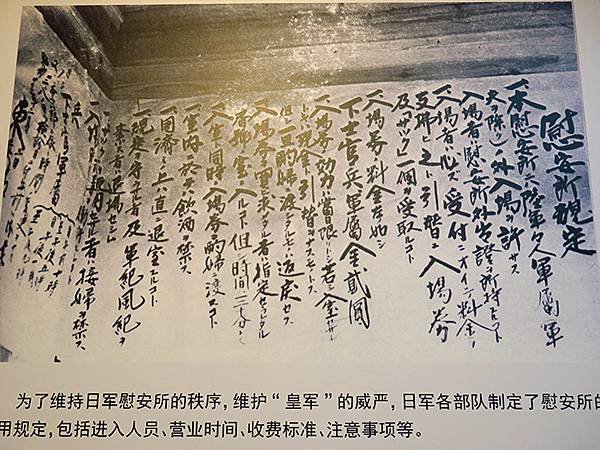 慰安所規定
一、本慰安所ニハ陸軍々人軍属(軍
夫ヲ除ク)ノ外入場ヲ許サス
一、入場者ハ慰安所外出證ヲ所持スルコト
一、入場者ハ必ス受付ニオイテ料金ヲ
支拂ヒ之ト引替ニ入場券
及「サック」一個ヲ受取ルコト
一、入場券ノ料金左ノ如シ
下士官兵軍属金貳圓
一、入場券ノ効力ハ當日限リトシ若シ入室セサ
ルトキハ現金ト引替ヲナスモノトス
但シ一旦酌婦ニ渡シタルモノハ返戻セス
一、入場券ヲ買求メタル者ハ指定セラレタル
番號ノ室ニ入ルコト但シ時間ハ三十分トス
一、入室ト同時ニ入場券ヲ酌婦ニ渡スコト
一、室内ニ於テハ飲酒ヲ禁ス
一、用濟ノ上ハ直ニ退室スルコト
一、規定ヲ守ラサル者及軍紀風紀ヲ
紊ス者ハ退場セシム
一、サックヲ使用セサル者ハ接婦ヲ禁ス
为了维持日军慰安所的秩序,维护“皇军”的威严,日军各部队制定了慰安所的
用规定,包括进入人员、营业时间、收费标准、注意事项等。